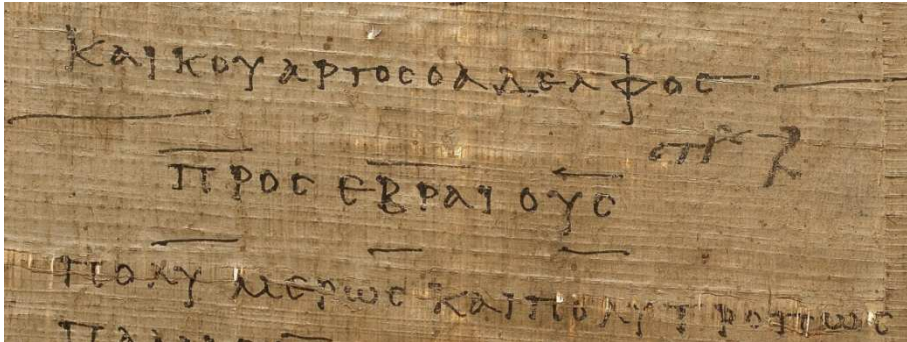 ΚΑΙ ΚΟΥΑΡΤΟϹ Ο ΑΔΕΛΦΟϹ
ΠΡΟϹ ΕΒΡΑΙΟΥϹ
ΠΟΛΥΜΕΡΩϹ ΚΑΙ ΠΟΛΥΤΡΟΠΩϹ